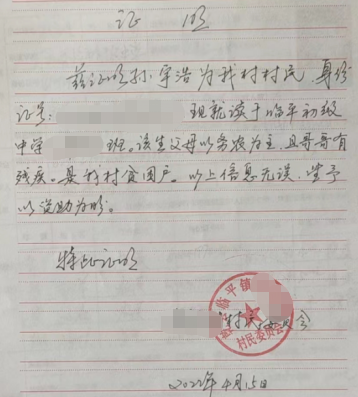 证 明
兹证明孙宇浩为我村村民,身份
证号: 现就读于临平初级
中学 班。该生父母以务农为主,且哥哥有
残疾。是我村贫困户。以上信息无误,望予
以资助为盼。
特此证明
村民委员会
临平镇
村民委员会
2022年4月15日